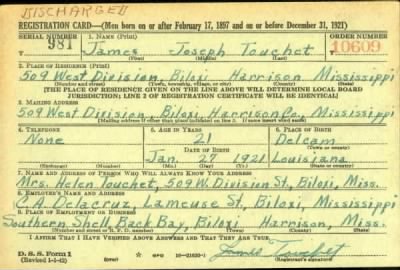 DISCHARGED
REGISTRATION CARD—(Men born on or after February 17, 1897 and on or before December 31, 1921)
SERIAL NUMBER 1. NAME (Print) ORDER NUMBER
981 James Joseph Touchet 10609
(First) (Middle) (Last)
2. PLACE OF RESIDENCE (Print)
509 West Division, Biloxi Harrison Mississippi
(Number and street) (Town, township, village, or city) (County) (State)
[THE PLACE OF RESIDENCE GIVEN ON THE LINE ABOVE WILL DETERMINE LOCAL BOARD
JURISDICTION; LINE 2 OF REGISTRATION CERTIFICATE WILL BE IDENTICAL]
3. MAILING ADDRESS
509 West Division, Biloxi, Harrison Co, Mississippi
[Mailing address if other than place indicated on line 2. If same insert word same]
4. TELEPHONE 5. AGE IN YEARS 6. PLACE OF BIRTH
None 21 Delcam
DATE OF BIRTH (Town or county)
Jan. 27 1921 Louisiana
(Exchange) (Number) (Mo.) (Day) (Yr.) (State or country)
7. NAME AND ADDRESS OF PERSON WHO WILL ALWAYS KNOW YOUR ADDRESS
Mrs. Helen Touchet, 509 W. Division St, Biloxi, Miss.
8. EMPLOYER'S NAME AND ADDRESS
C. A. Delacruz, Lameuse St, Biloxi, Mississippi
9. PLACE OF EMPLOYMENT OR BUSINESS
Southern Shell, Back Bay, Biloxi Harrison, Miss.
(Number and street or R. F. D. number) (Town) (County) (State)
I AFFIRM THAT I HAVE VERIFIED ABOVE ANSWERS AND THAT THEY ARE TRUE.
D. S. S. Form 1
(Revised 1-1-42) (over) GPO 16—21630-1 James Touchet